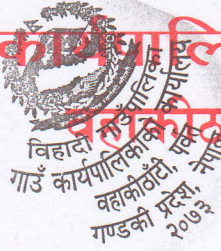 कार्यपालि
वहाकीठ
विहादी गाउँपालिका
गाउँ कार्यपालिकाको कार्यालय
वहाकीठाँटी, पर्वत
गण्डकी प्रदेश, नेपाल
२०७३